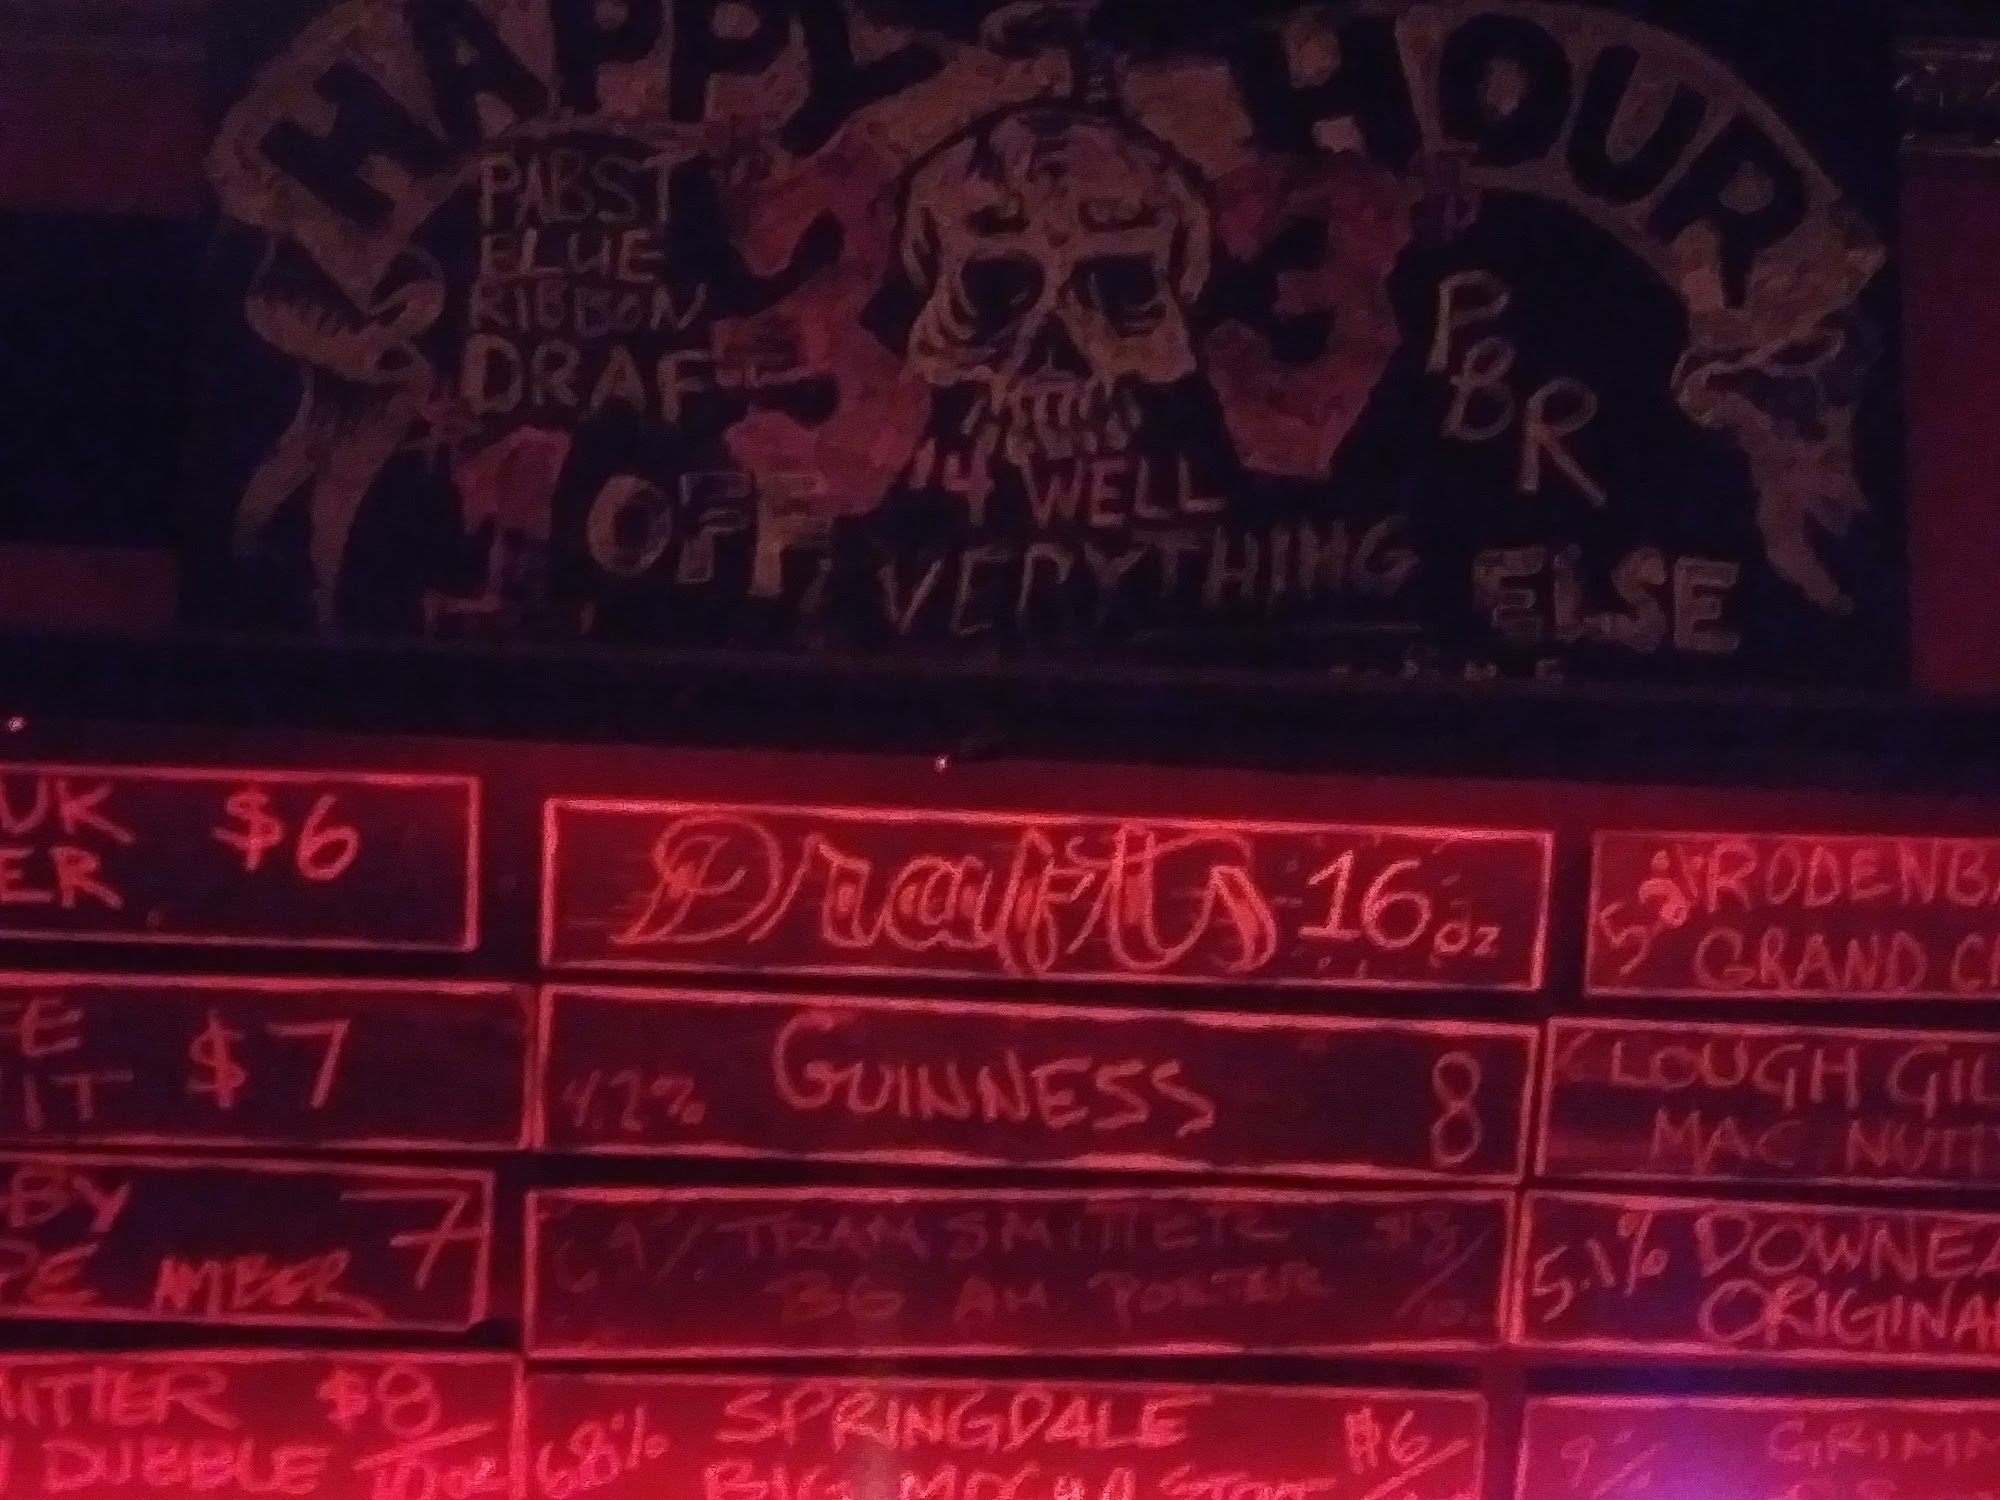 HAPPY HOUR
PABST
BLUE
RIBBON
DRAFT
3
3
PBR
$1 OFF
$4 WELL
EVERYTHING ELSE
UK $6
ER
Drafts 16oz
RODENBA
GRAND C
E $7
IT
4.2% GUINNESS 8
CLOUGH GIL
MAC NUTT
BY 7
PE AMBER
TRANSMITTER $8/
BG AM PORTER
5.1% DOWNEA
ORIGINA
MITTER $8/
DUBBLE 10oz
6.8% SPRINGDALE $6/
BIG MOCHA STOUT
9% GRIMM